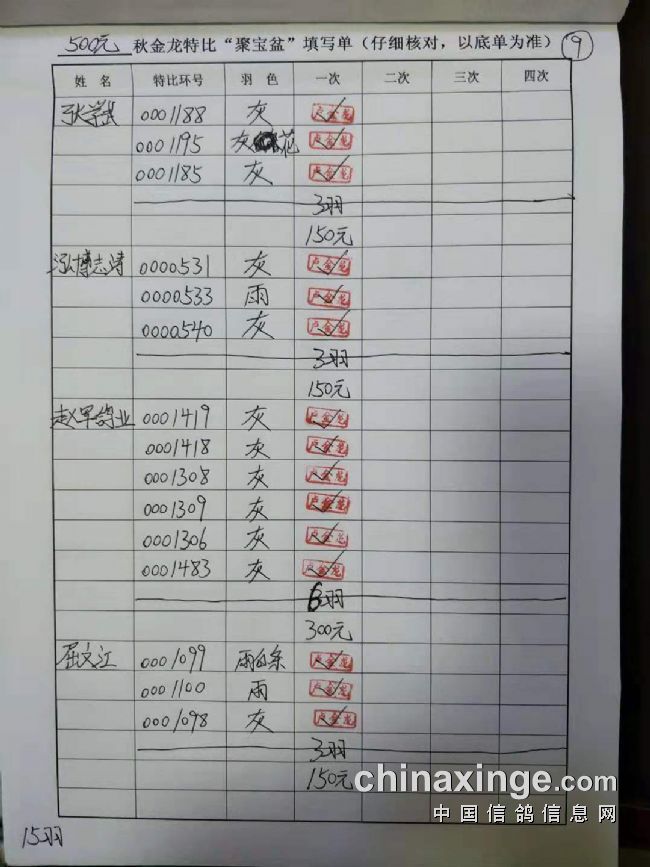 500元 秋金龙特比“聚宝盆”填写单（仔细核对，以底单为准） 9
姓 名 特比环号 羽 色 一次 二次 三次 四次
张学武 0001188 灰 卢金龙
0001195 灰 花 卢金龙
0001185 灰 卢金龙
3羽
150元
泓博志涛 0000531 灰 卢金龙
0000533 雨 卢金龙
0000540 灰 卢金龙
3羽
150元
赵军鸽业 0001419 灰 卢金龙
0001418 灰 卢金龙
0001308 灰 卢金龙
0001309 灰 卢金龙
0001306 灰 卢金龙
0001483 灰 卢金龙
6羽
300元
屈文江 0001099 雨白条 卢金龙
0001100 雨 卢金龙
0001098 灰 卢金龙
3羽
150元
chinaxinge.com
中国信鸽信息网
15羽